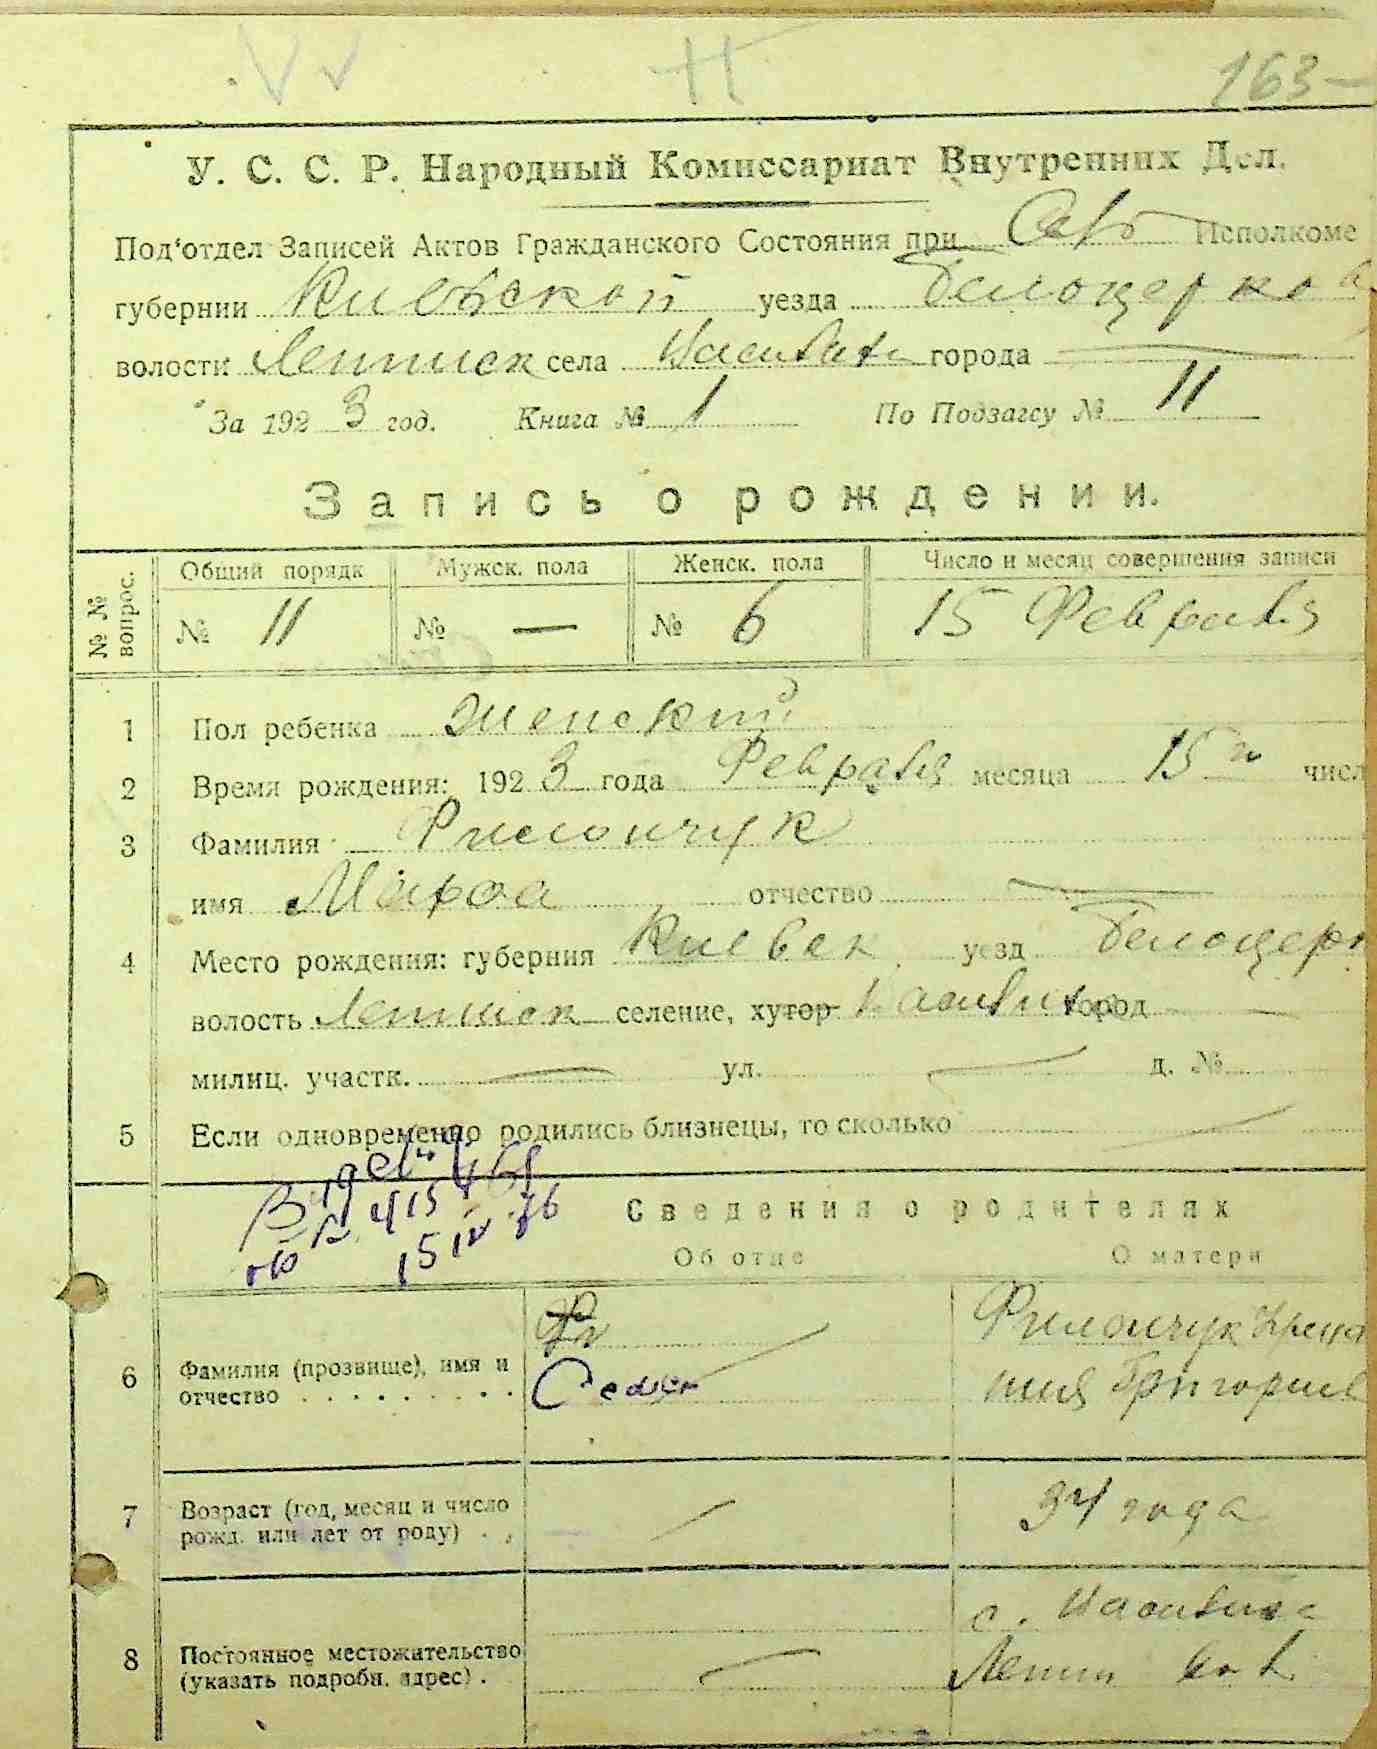 163—
У. С. С. Р. Народный Комиссариат Внутренних Дел.
Под'отдел Записей Актов Гражданского Состояния при Исполкоме
губернии Киевской уезда Белоцерков
волости Ленинск села города —
За 1923 год. Книга № 1 По Подзагсу № 11
Запись о рождении.
№ № вопрос.
Общий порядк Мужск. пола Женск. пола Число и месяц совершения записи
№ 11 № — № 6 15 Февраля
1 Пол ребенка женский
2 Время рождения: 1923 года Февраля месяца 15го числ
3 Фамилия Филончук
имя Марфа отчество —
4 Место рождения: губерния Киевск уезд Белоцерк
волость Ленинск селение, хутор город —
милиц. участк. — ул. — д. №
5 Если одновременно родились близнецы, то сколько —
Сведения о родителях
Об отце О матери
6 Фамилия (прозвище), имя и
отчество
Филончук
Григориев
7 Возраст (год, месяц и число
рожд. или лет от роду) — 34 года
8 Постоянное местожительство
(указать подробн. адрес) — Ленин вол.